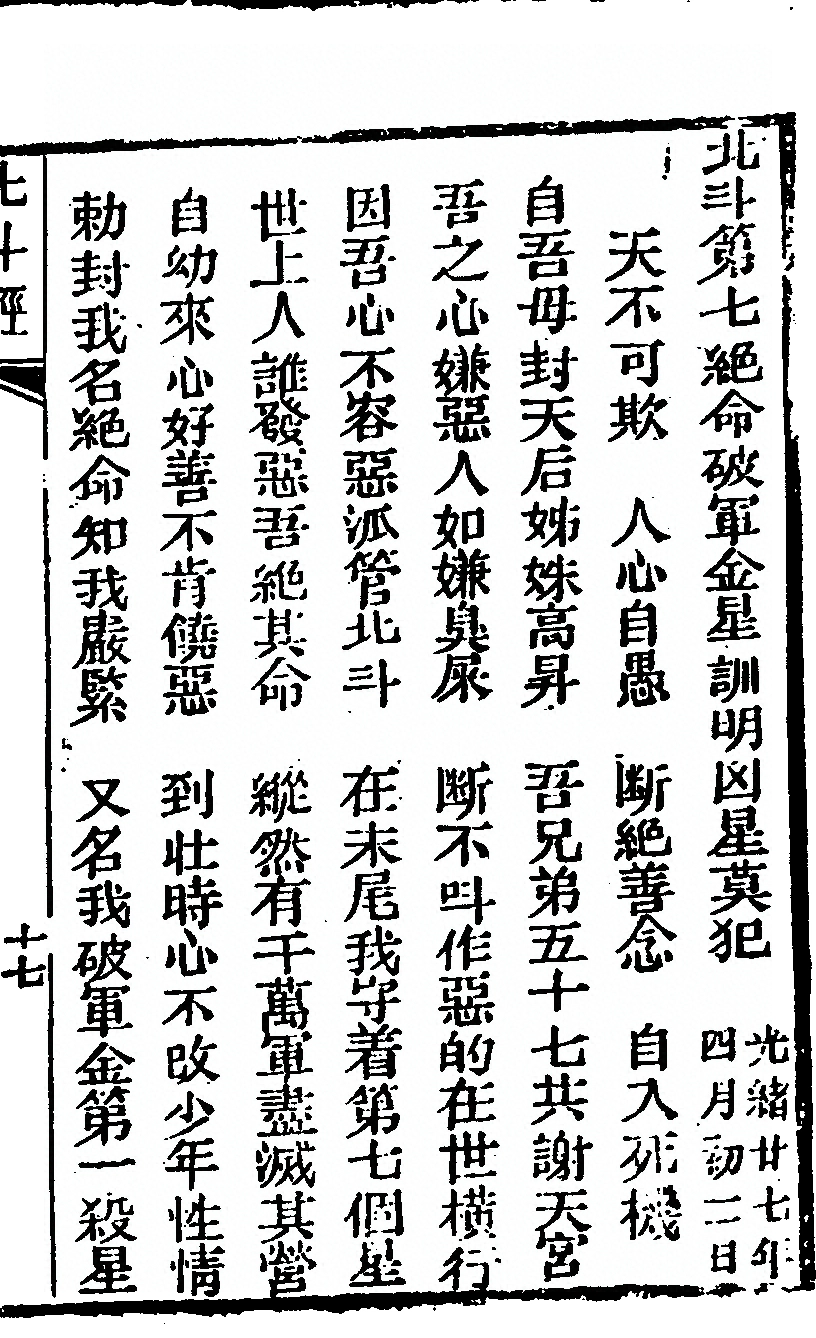 北斗第七絕命破軍金星訓明凶星莫犯 光緒廿七年四月初二日
天不可欺　人心自愚　斷絕善念　自入死機
自吾母封天后姊姝高昇　吾兄弟五十七共謝天宮
吾之心嫌惡人如嫌臭屎　断不叫作惡的在世橫行
因吾心不容惡派管北斗　在末尾我守着第七個星
世上人誰發惡吾絕其命　縱然有千萬軍盡滅其營
自幼來心好善不肯饒惡　到壯時心不改少年性情
勅封我名絕命知我嚴緊　又名我破軍金第一殺星
七斗經
十七